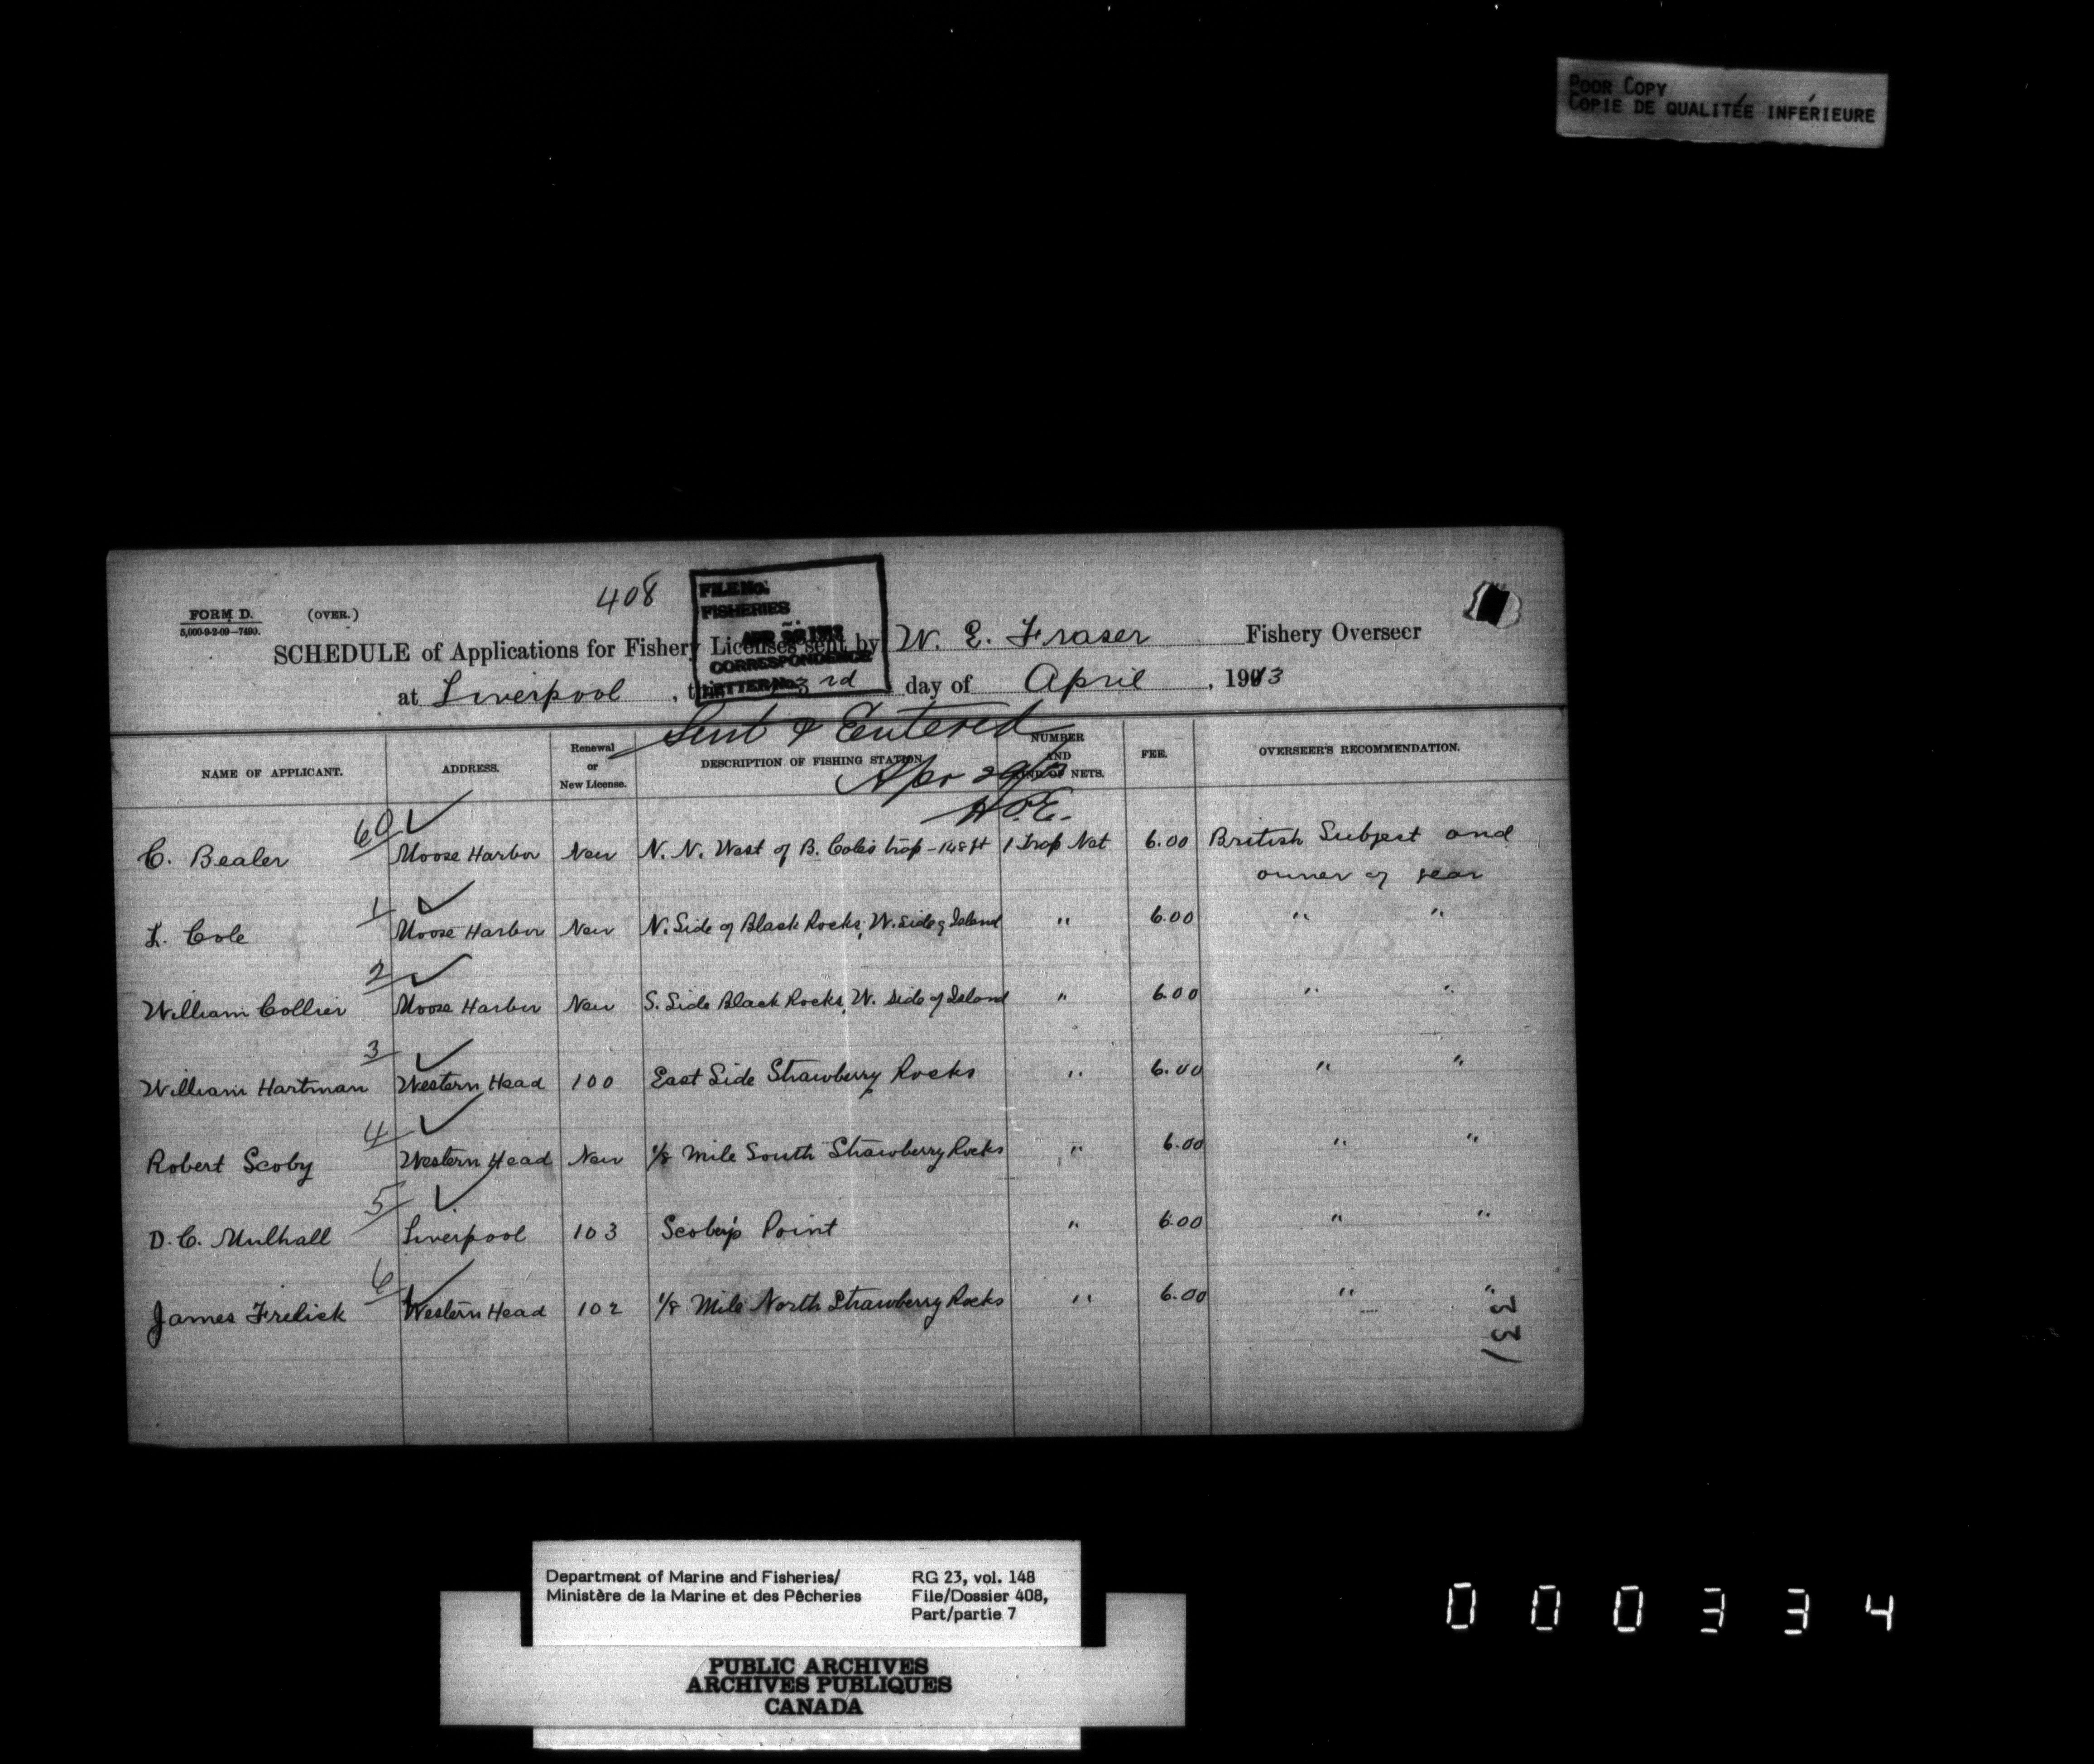 POOR COPY
COPIE DE QUALITÉE INFÉRIEURE
408
FORM D. (OVER.)
5,000-9-2-09—7490.
FILE No.
FISHERIES
APR 1913
CORRESPONDENCE
LETTER No.
SCHEDULE of Applications for Fishery Licenses sent by W. E. Fraser Fishery Overseer
at Liverpool, 3rd day of April, 1913
Sent & Entered
Apr 29/13
NAME OF APPLICANT. ADDRESS. Renewal or New License. DESCRIPTION OF FISHING STATION NUMBER AND KIND OF NETS. FEE. OVERSEER'S RECOMMENDATION.
C. Bealer 60 ✓ Moose Harbor New N. N. West of B. Cole's trap - 148 ft 1 Trap Net 6.00 British Subject and
owner of gear
L. Cole 1 ✓ Moose Harbor New N. Side of Black Rocks, W. Side of Island " 6.00 " "
William Collier 2 ✓ Moose Harbor New S. Side Black Rocks, W. Side of Island " 6.00 " "
William Hartman 3 ✓ Western Head 100 East Side Strawberry Rocks " 6.00 " "
Robert Scoby 4 ✓ Western Head New 1/8 Mile South Strawberry Rocks " 6.00 " "
D. C. Mulhall 5 ✓ Liverpool 103 Scoby's Point " 6.00 " "
James Frelick 6 ✓ Western Head 102 1/8 Mile North Strawberry Rocks " 6.00 " "
331
Department of Marine and Fisheries/
Ministère de la Marine et des Pêcheries
RG 23, vol. 148
File/Dossier 408,
Part/partie 7
PUBLIC ARCHIVES
ARCHIVES PUBLIQUES
CANADA
000334